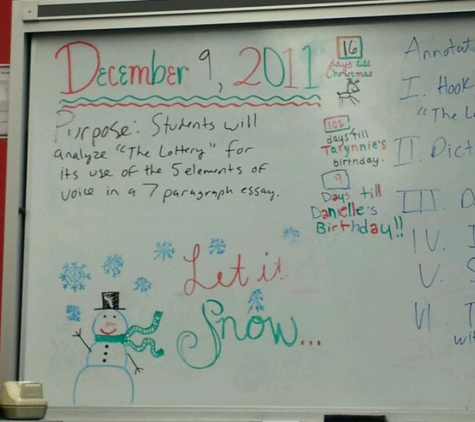 December 9, 2011
Purpose: Students will
analyze "The Lottery" for
its use of the 5 elements of
voice in a 7 paragraph essay.
16
days till
Christmas
102
days till
Tarynnie's
birthday.
9
Days till
Danielle's
Birthday!!
Let it
Snow...
Annotat
I. Hook
"The L
II. Dict
III. D
IV. I
V. S
VI T
wit